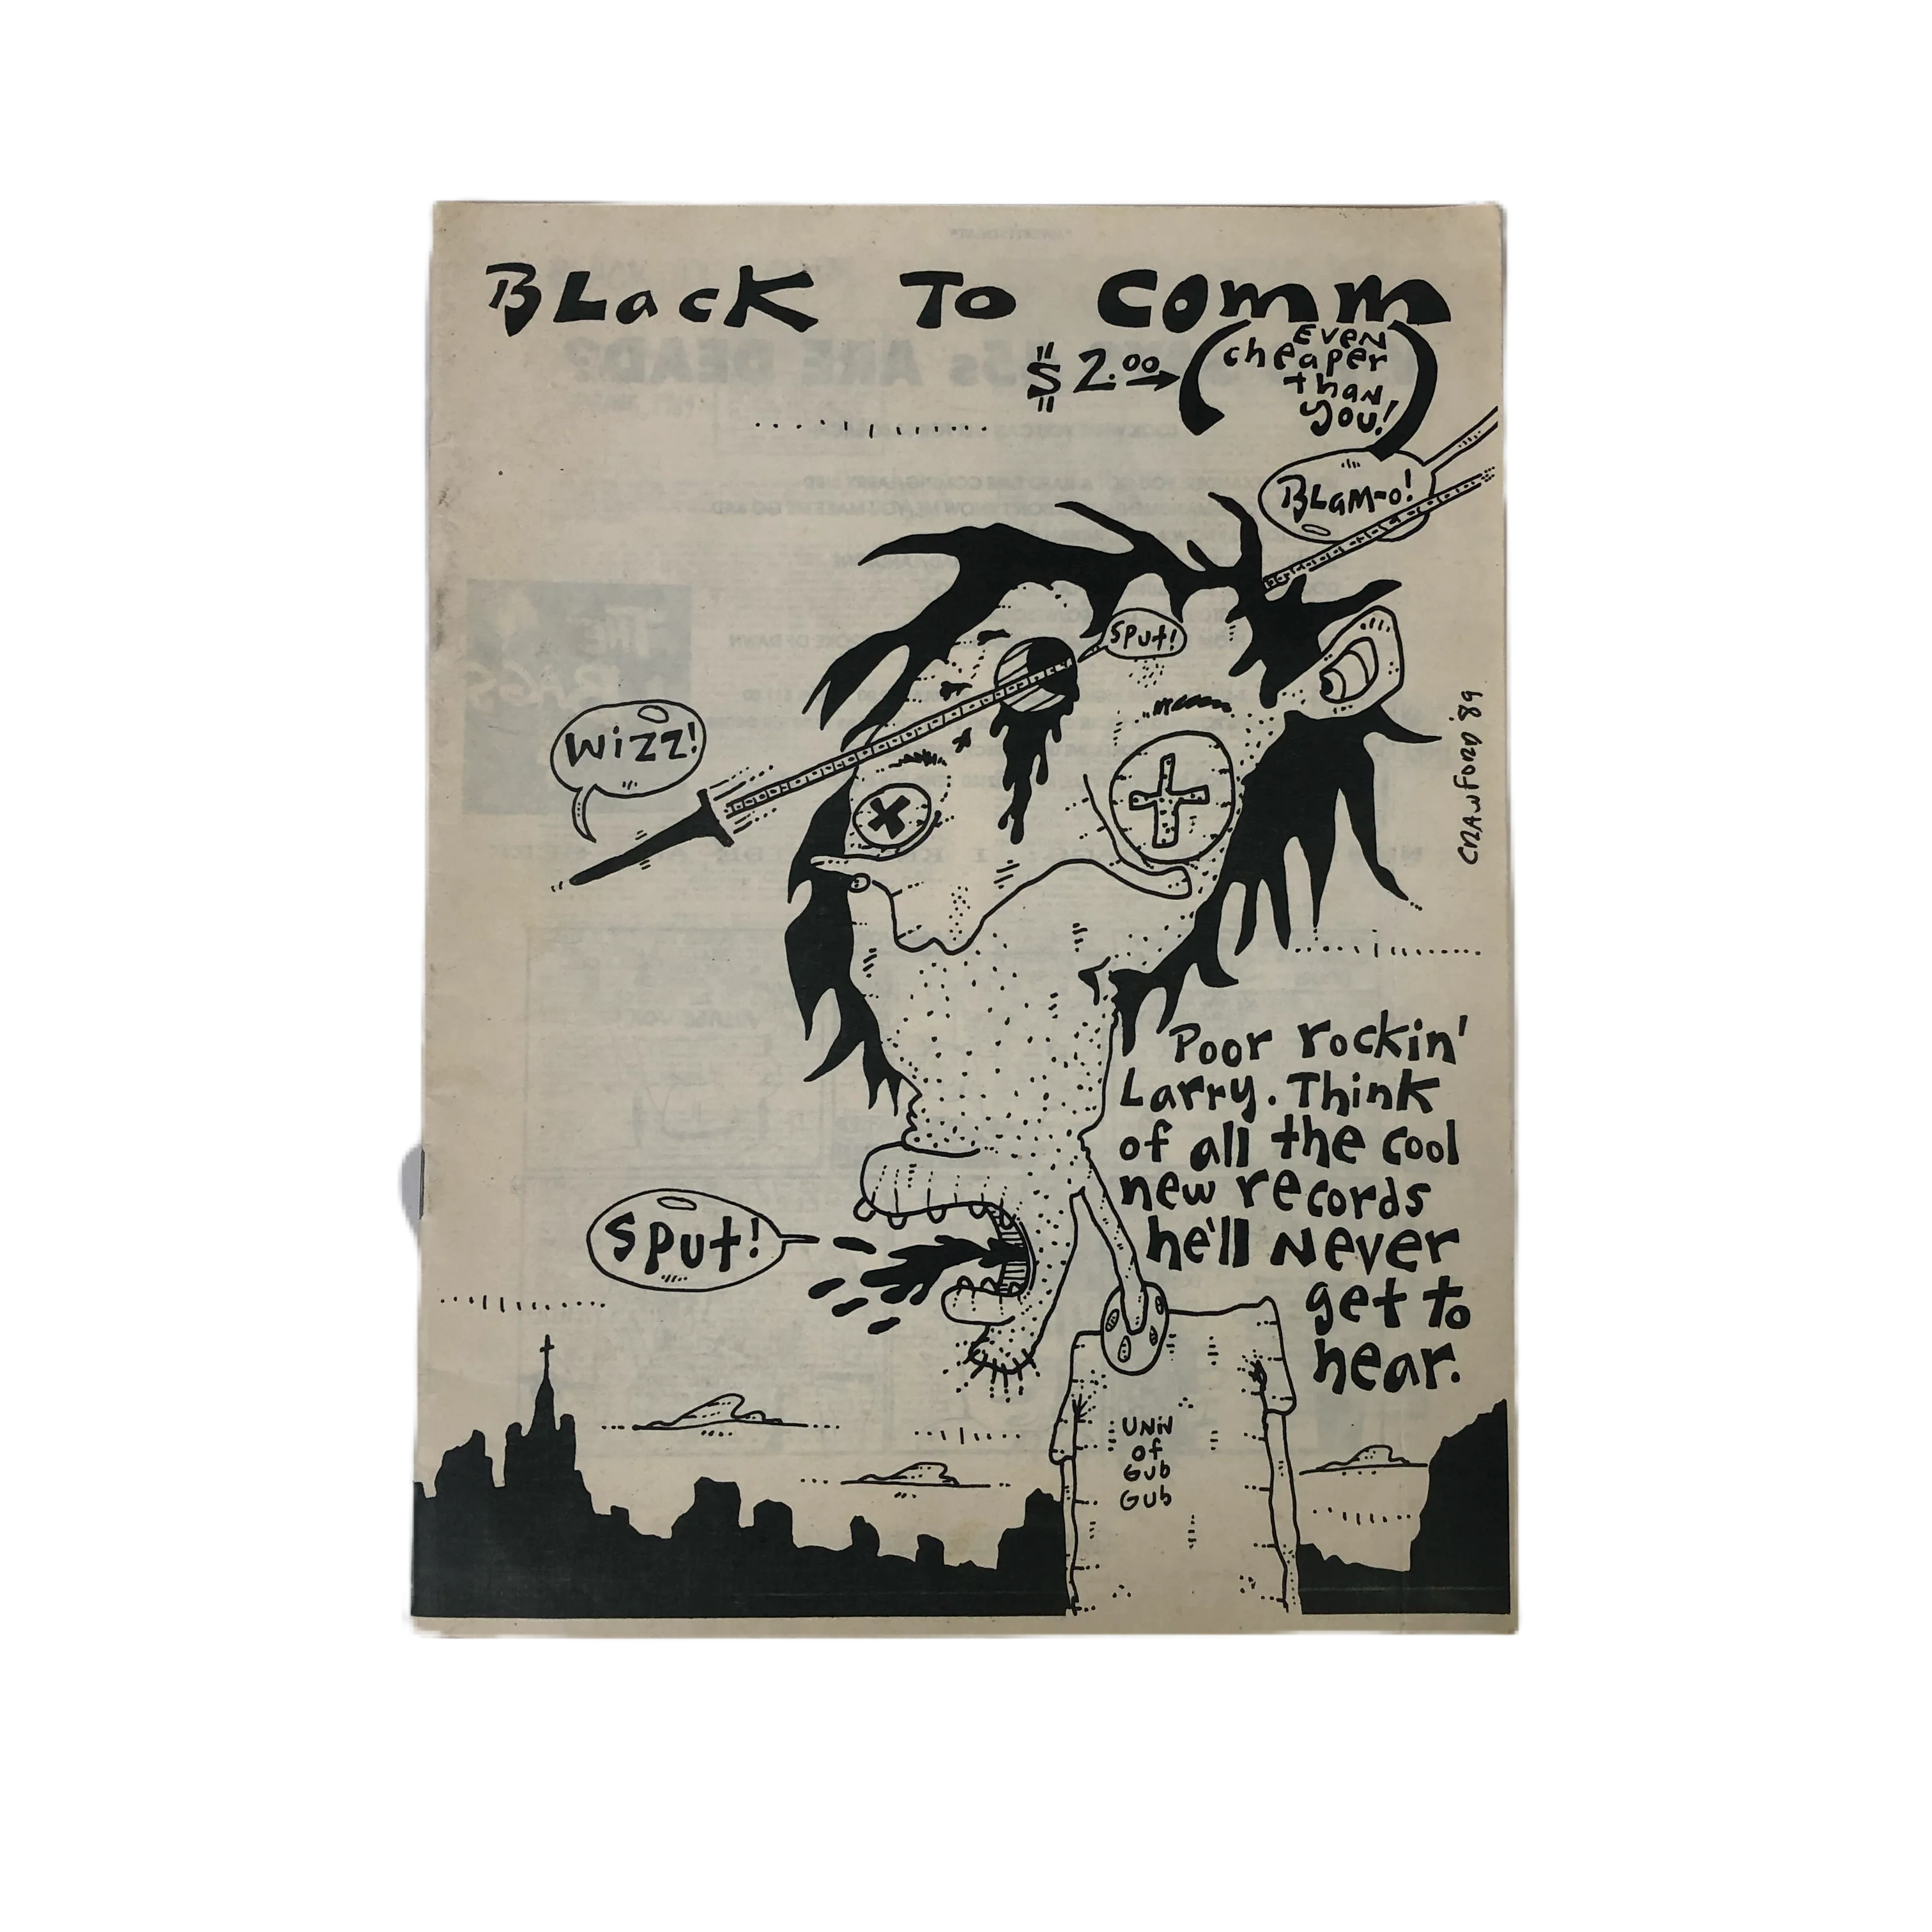 BLacK To Comm
$2.00 (EVEN
cheaper
than
you!)
BLAM-O!
SPut!
WiZZ!
CRAWFORD '89
Poor rockin'
Larry. Think
of all the cool
new records
he'll Never
get to
hear.
SPut!
UNiV
of
Gub
Gub